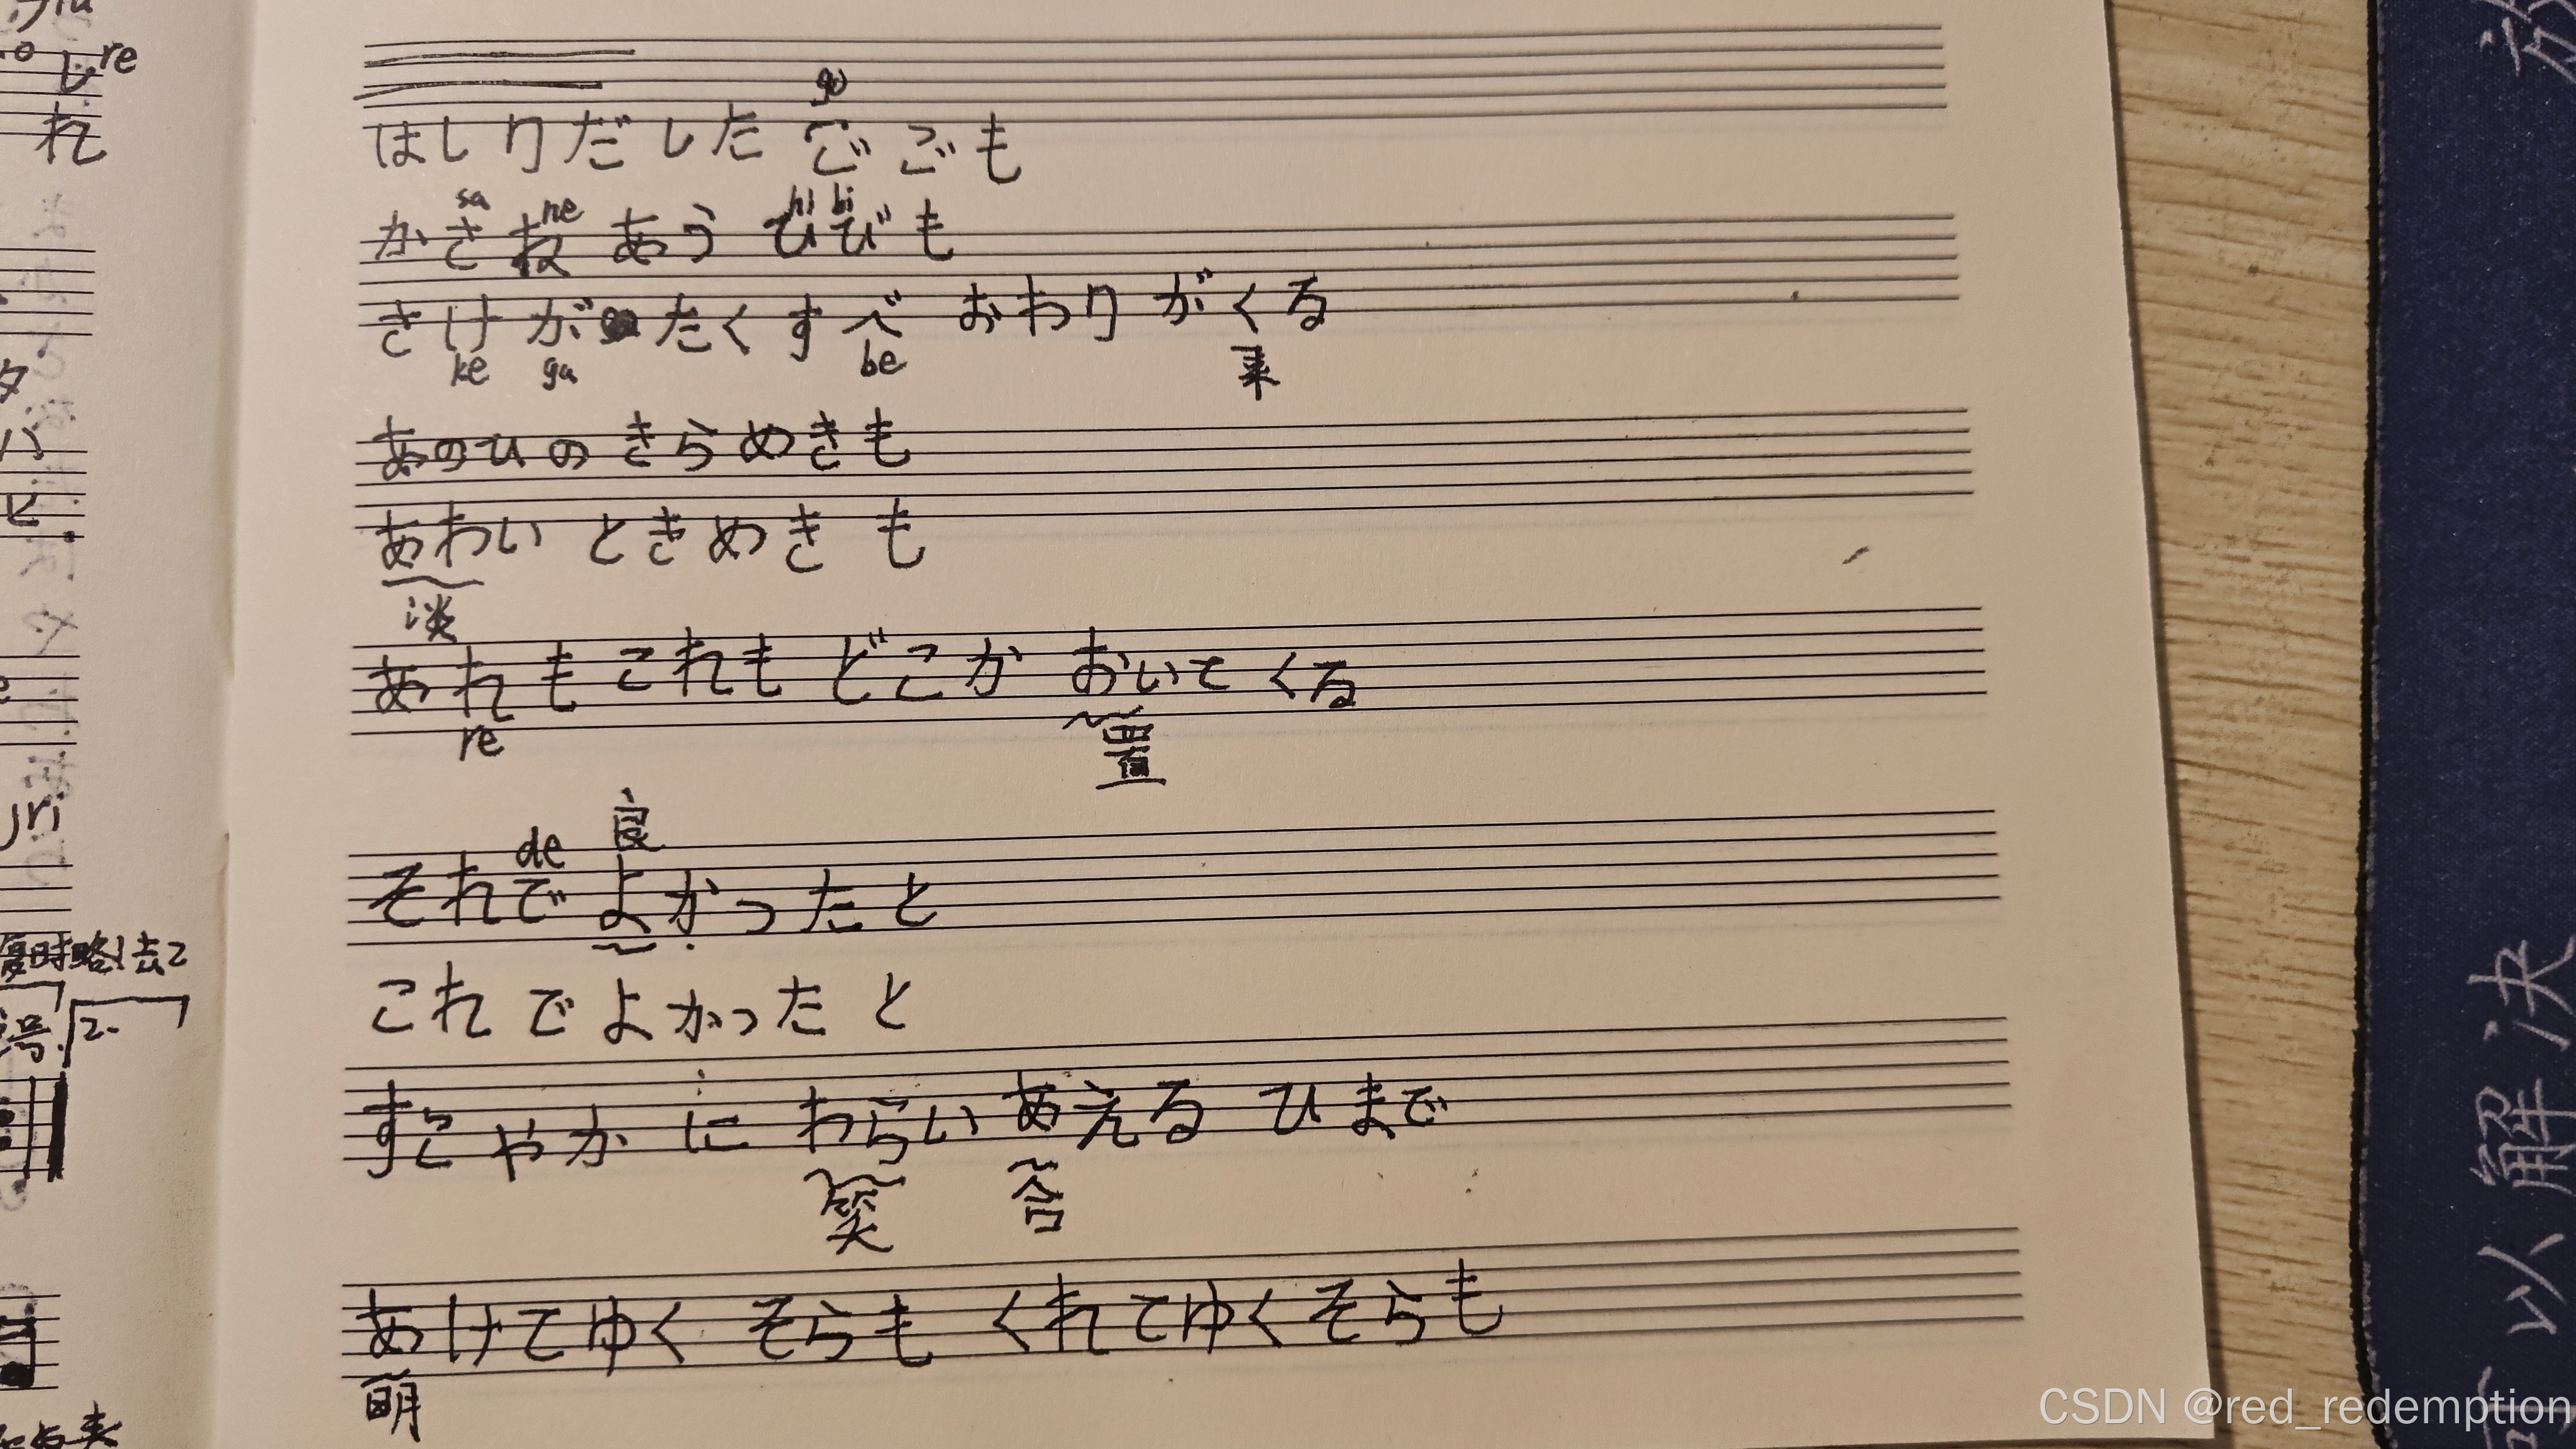 re
し
れ
go
はしりだした ごごも
sa ne hi bi
かさね あう ひびも
さけがたくすべ おわりがくる
ke ga be 来
あのひの きらめきも
あわい ときめきも
淡
あれもこれも どこか おいてくる
re
置
良
de
それで よかったと
これで よかったと
すこやかに わらい あえる ひまで
笑 合
あけてゆく そらも くれてゆくそらも
明
タ
ハ
ヒ
ri
复时略去2
号 2.
解决
以
CSDN @red_redemption